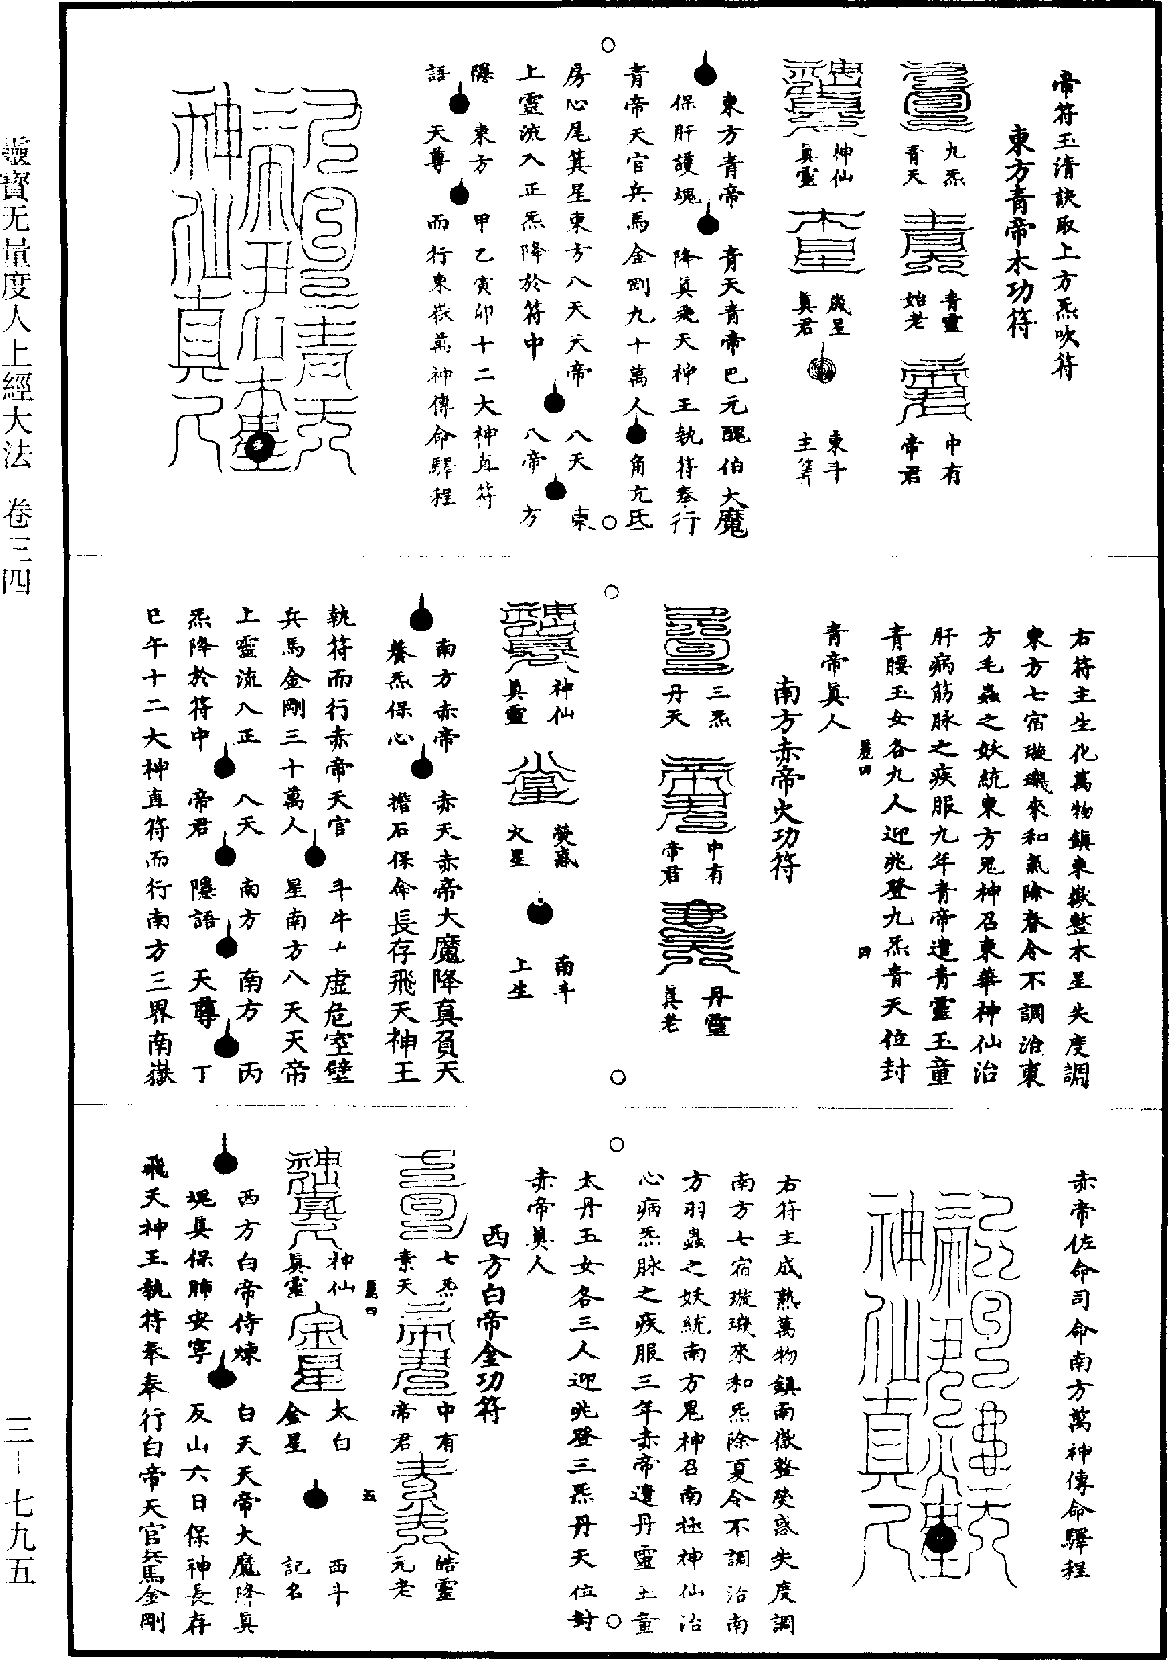 帝符玉清訣取上方炁吹符
東方青帝木功符
九炁青天
青靈始老
中有帝君
神仙真靈
木星
歲星真君
東斗主筭
東方青帝 青天青帝巴元醜伯大魔
保肝護魂 降真飛天神王執符奉行
青帝天官兵馬金剛九十萬人 角亢氐
房心尾箕星東方八天天帝 八天 東
上靈流入正炁降於符中 八帝 方
隱 東方 甲乙寅卯十二大神直符
語 天尊 而行東嶽萬神傳命驛程
右符主生化萬物鎮東嶽整木星失度調
東方七宿璇璣來和氣除春令不調治東
方毛蟲之妖統東方鬼神召東華神仙治
肝病筋脉之疾服九年青帝遣青靈玉童
青腰玉女各九人迎兆登九炁青天位封
青帝真人
南方赤帝火功符
三炁丹天
中有帝君
丹靈真老
神仙真靈
熒惑火星
南斗上生
南方赤帝 赤天赤帝大魔降真負天
養炁保心 擔石保命長存飛天神王
執符而行赤帝天官 斗牛女虛危室壁
兵馬金剛三十萬人 星南方八天天帝
上靈流入正 八天 南方 南方 丙
炁降於符中 帝君 隱語 天尊 丁
巳午十二大神直符而行南方三界南嶽
赤帝佐命司命南方萬神傳命驛程
右符主成熟萬物鎮南嶽整熒惑失度調
南方七宿璇璣來和炁除夏令不調治南
方羽蟲之妖統南方鬼神召南極神仙治
心病炁脉之疾服三年赤帝遣丹靈玉童
太丹玉女各三人迎兆登三炁丹天位封
赤帝真人
西方白帝金功符
七炁素天
中有帝君
皓靈元老
神仙真靈
金星
太白金星
西斗記名
西方白帝侍煉 白天天帝大魔降真
魄真保肺安寧 反山六日保神長存
飛天神王執符奉奉行白帝天官兵馬金剛
靈寶无量度人上經大法 卷三四
三—七九五